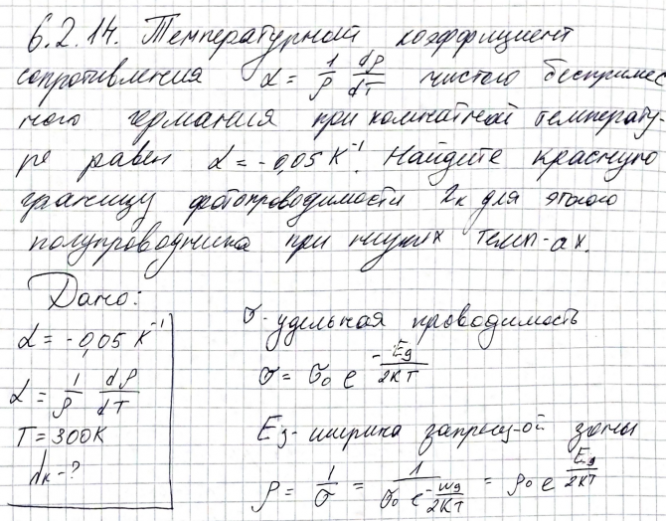 6.2.14. Температурный коэффициент
сопротивления α = 1/ρ dρ/dT чистого беспримес
ного германия при комнатной температу-
ре равен α = -0,05 K⁻¹. Найдите красную
границу фотопроводимости λк для этого
полупроводника при низких темп-ах.
Дано:
α = -0,05 K⁻¹
α = 1/ρ dρ/dT
T = 300K
λк - ?
σ - удельная проводимость
σ = σ₀ e^(-Eg/2KT)
Eg - ширина запрещ-ой зоны
ρ = 1/σ = 1/(σ₀ e^(-Wg/2KT)) = ρ₀ e^(Eg/2KT)